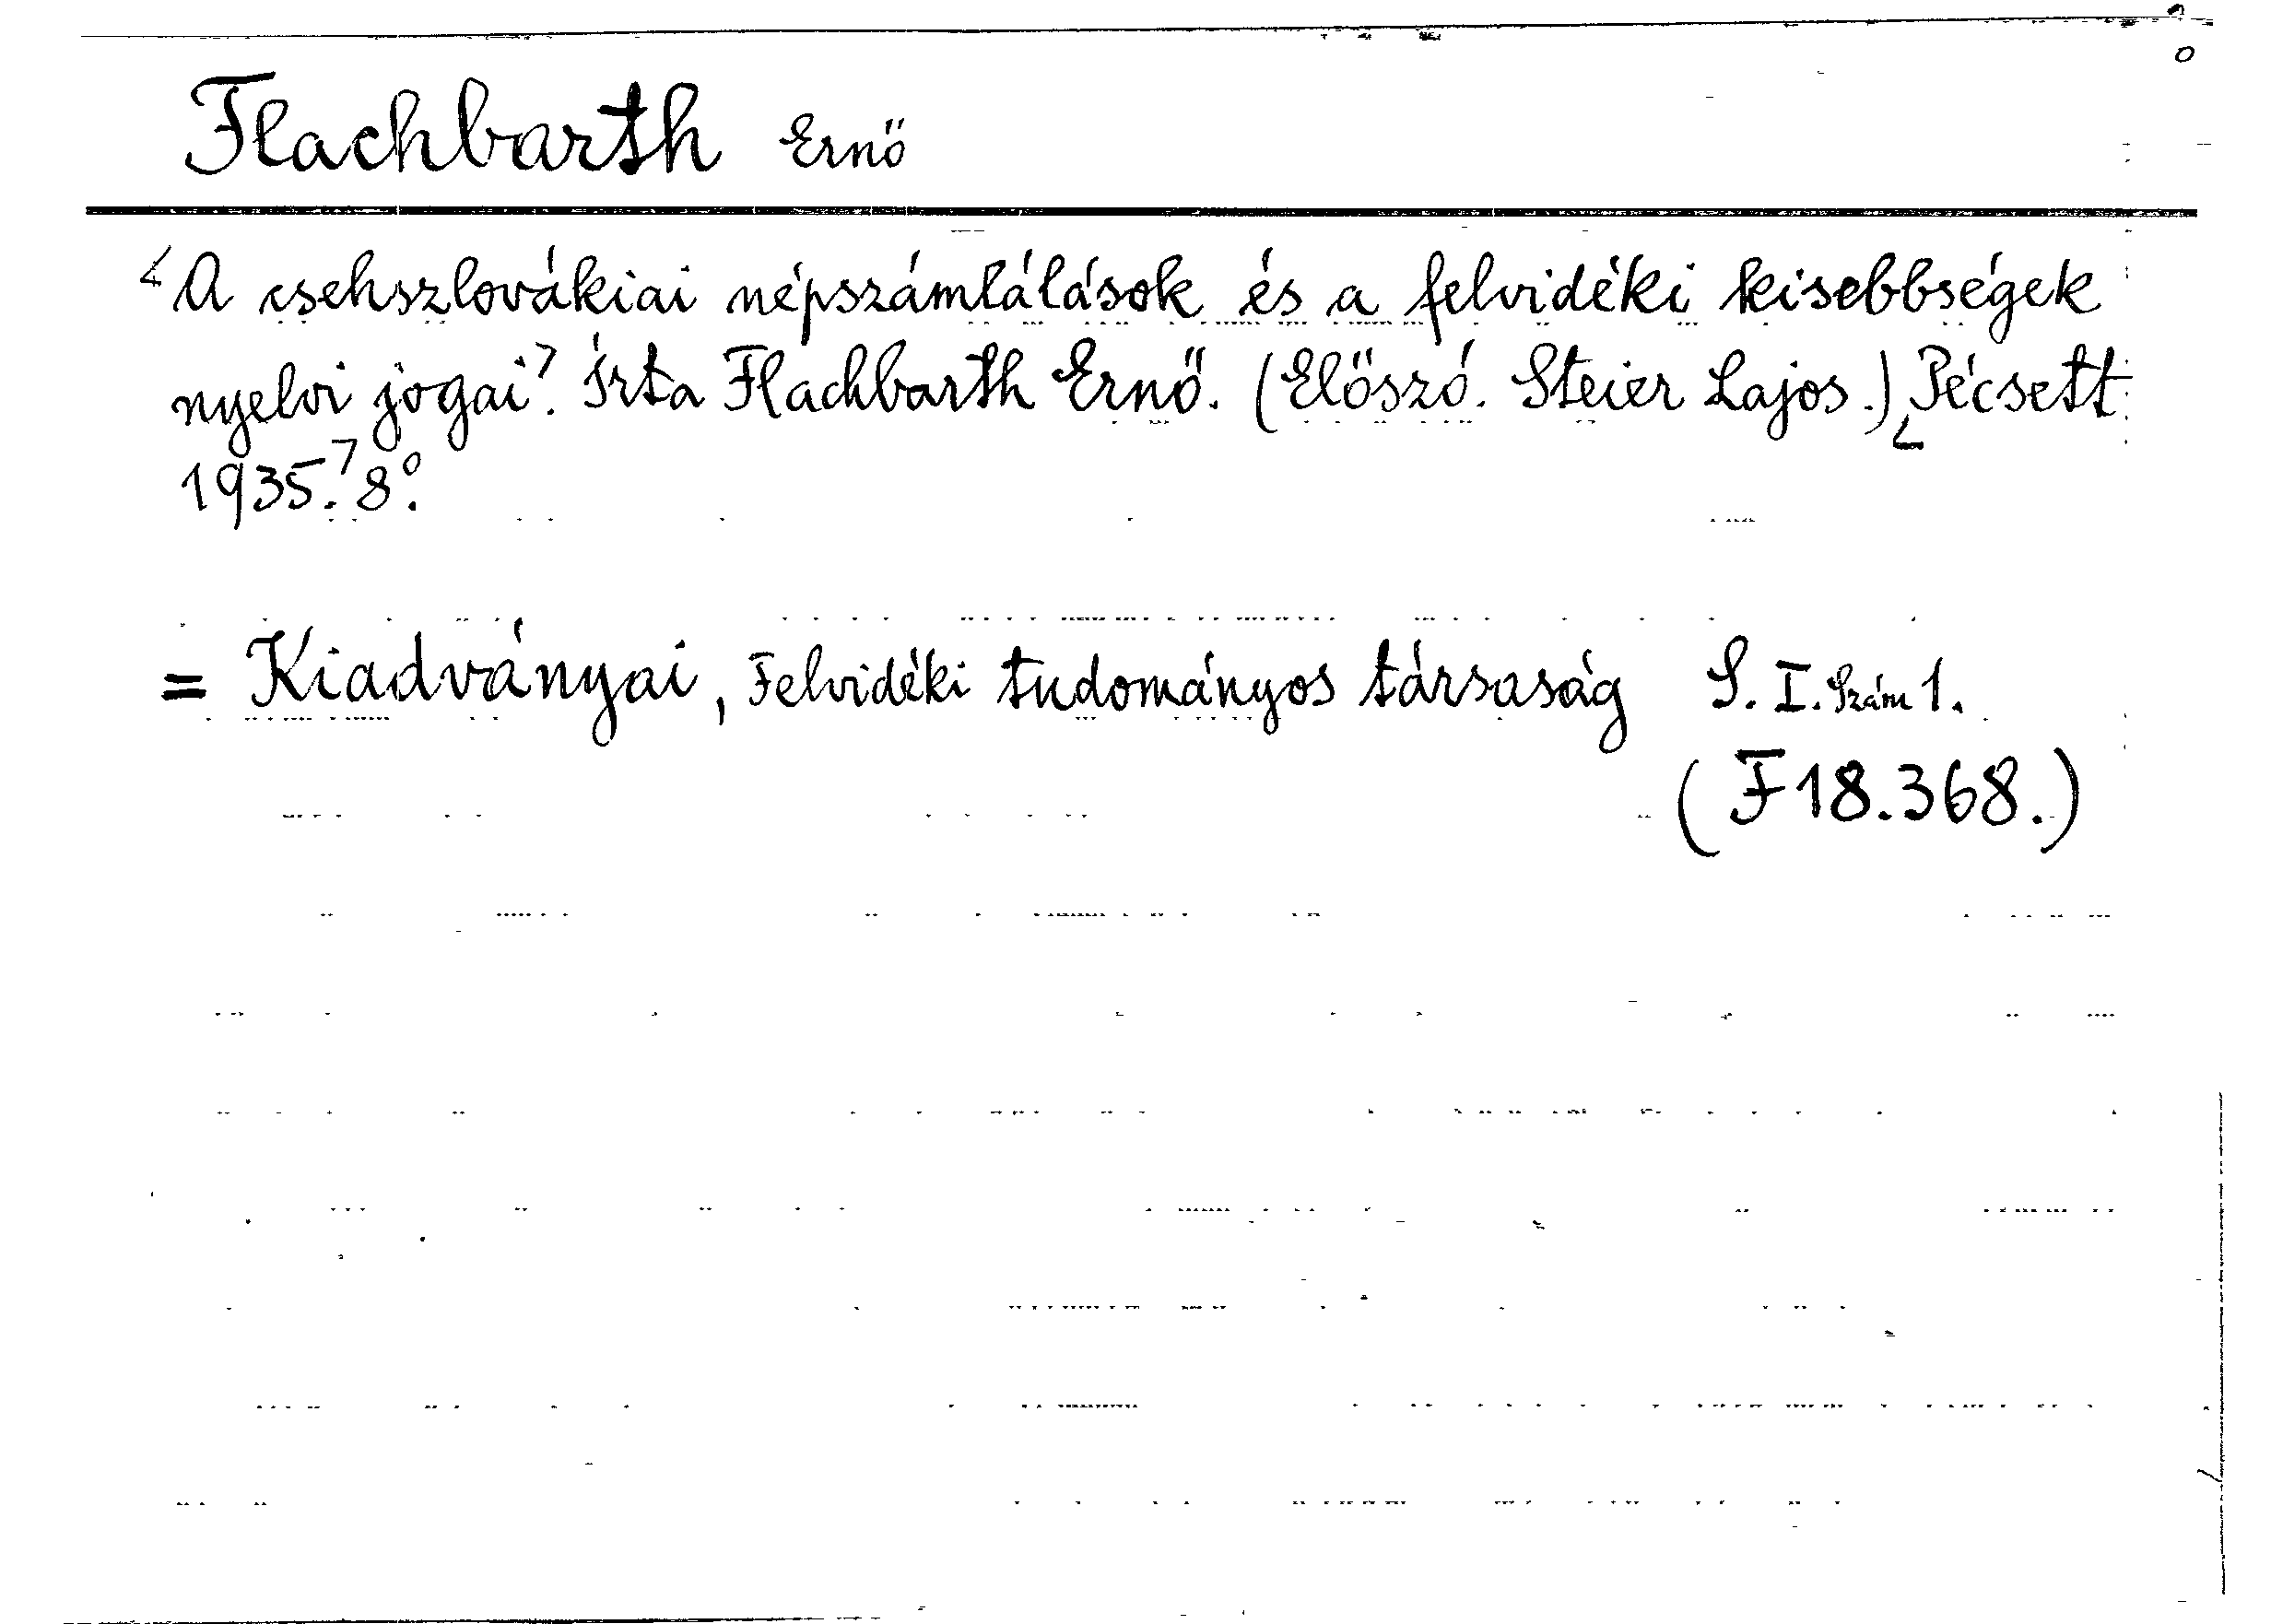 Flachbarth Ernő
A csehszlovákiai népszámlálások és a felvidéki kisebbségek
nyelvi jogai. Írta Flachbarth Ernő. (Előszó. Steier Lajos.) Pécsett
1935. 8°.
= Kiadványai, Felvidéki tudományos társaság S. I. Szám 1.
(F 18.368.)